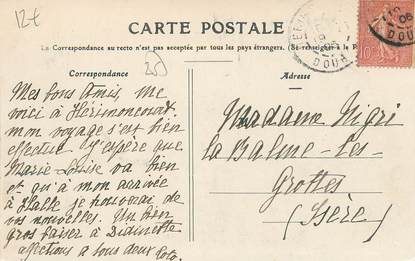 12€
CARTE POSTALE
La Correspondance au recto n'est pas acceptée par tous les pays étrangers. (Se renseigner à la
Correspondance
Adresse
Mes bons Amis me
voici à Hérimoncourt
mon voyage s'est bien
effectué. J'espère que
Marie Louise va bien
et qu'à mon arrivée
à Halle je trouverai de
vos nouvelles. Un bien
gros baiser à Didinette
affections à tous deux Toto.
Madame Nigri
La Balme-les-
Grottes
(Isère)
DOUBS